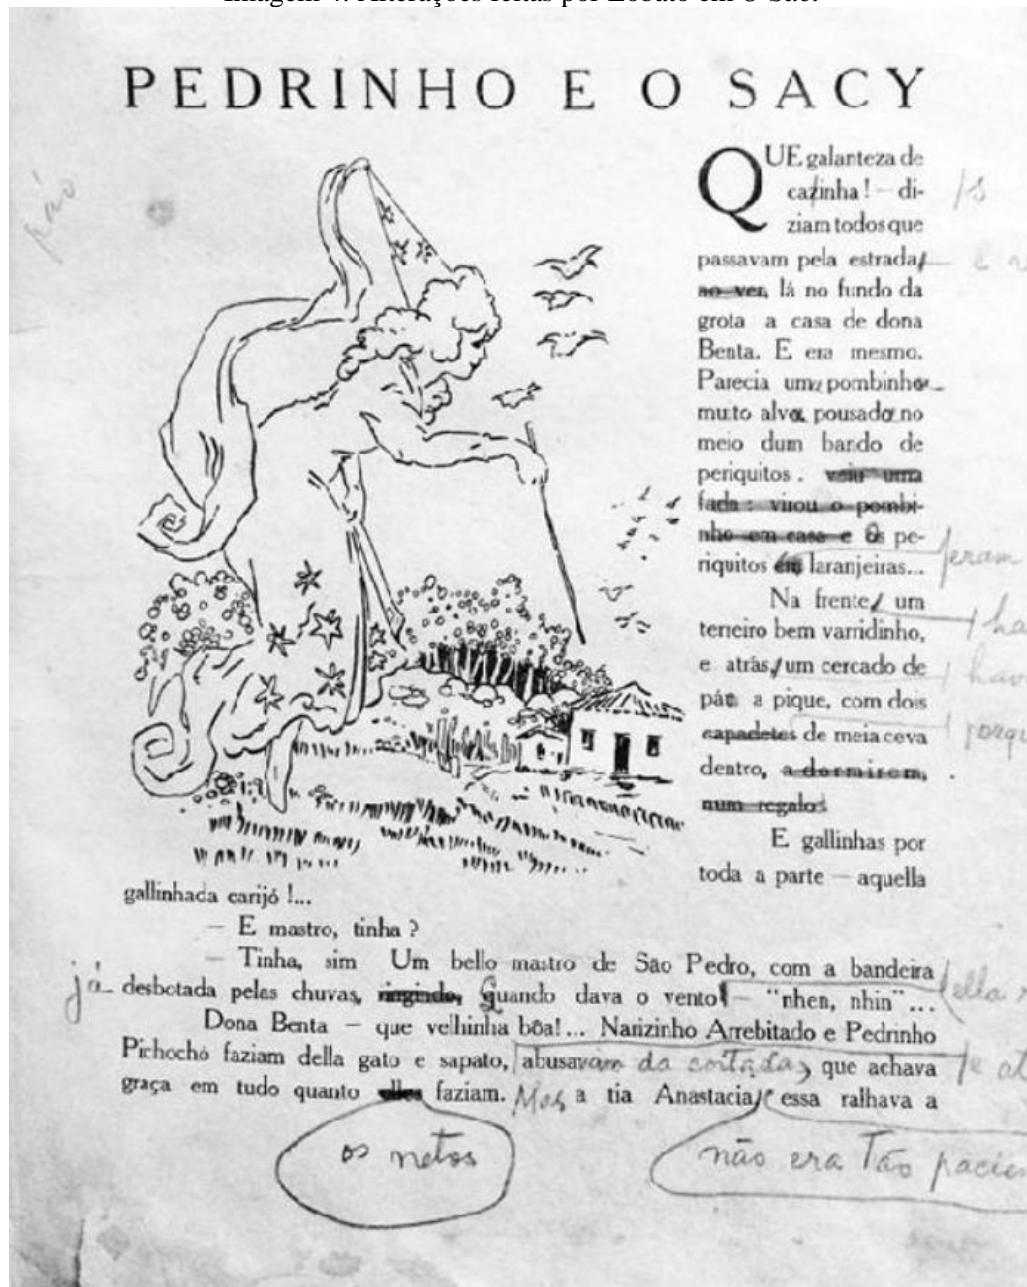 PEDRINHO E O SACY
QUE galanteza de
cazinha! — di-
ziam todos que
passavam pela estrada,
ao ver, lá no fundo da
grota a casa de dona
Benta. E era mesmo.
Parecia um pombinho
muito alvo pousado no
meio dum bando de
periquitos. veiu uma
fada: virou o pombi-
nho em casa e os pe-
riquitos em laranjeiras...
Na frente, um
terreiro bem varridinho,
e atrás, um cercado de
páu a pique, com dois
capadetes de meia ceva
dentro, a dormirem,
num regalo!
E gallinhas por
toda a parte — aquella
gallinhada carijó!...
— E mastro, tinha?
— Tinha, sim Um bello mastro de São Pedro, com a bandeira
já desbotada pelas chuvas, ringindo, Quando dava o vento — "nhen, nhin"...
Dona Benta — que velhinha bôa!... Narizinho Arrebitado e Pedrinho
Pichochó faziam della gato e sapato, abusavam da coitada, que achava
graça em tudo quanto elles faziam. Mas a tia Anastacia, essa ralhava a
os netos
não era Tão